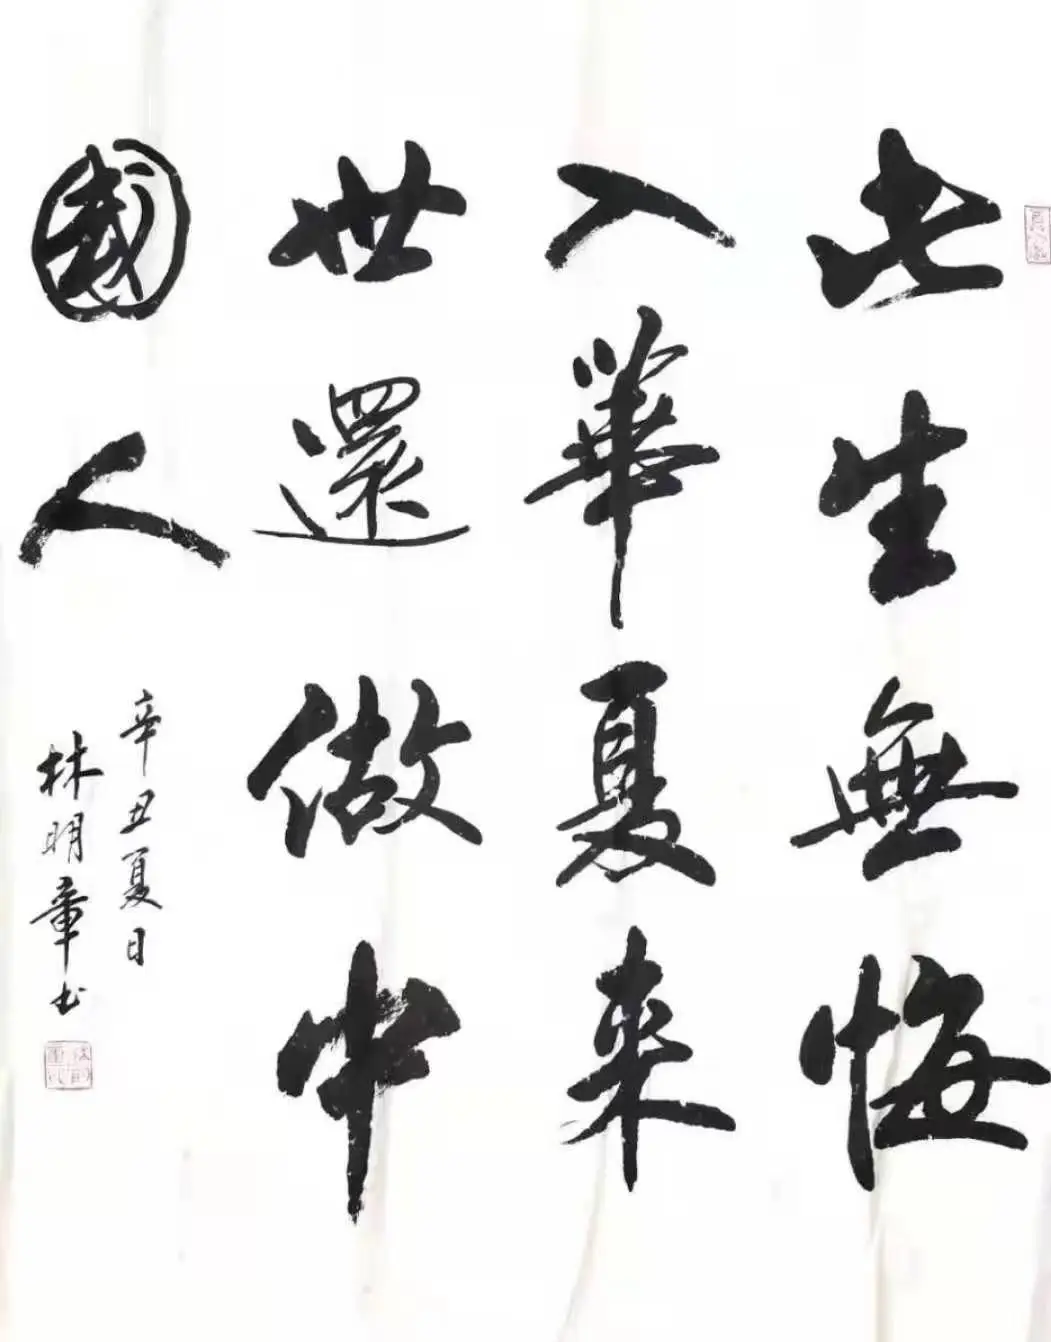 此生無悔
入華夏来
世還做中
國人
辛丑夏日
林明章书